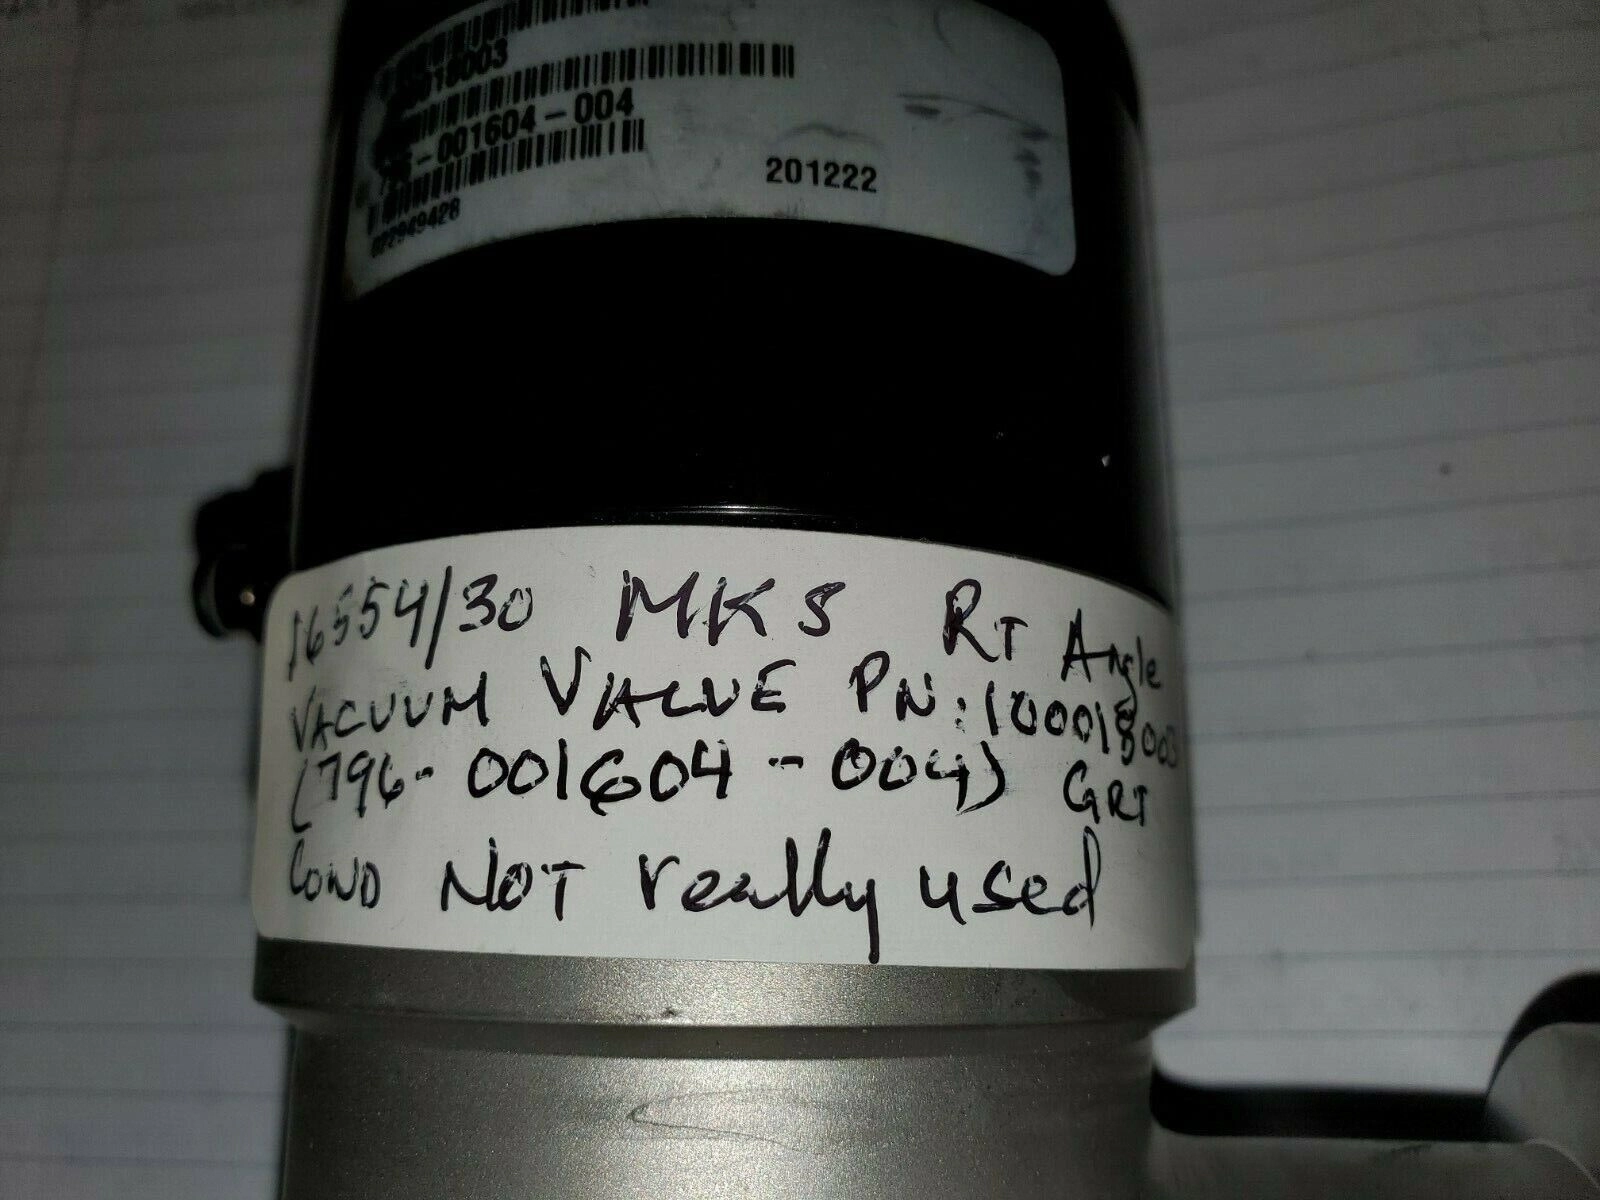 018003
-001604-004
022949428
201222
16554/30 MKS RT Angle
VACUUM VALVE PN:100018003
(796-001604-004) GRT
COND NOT really used